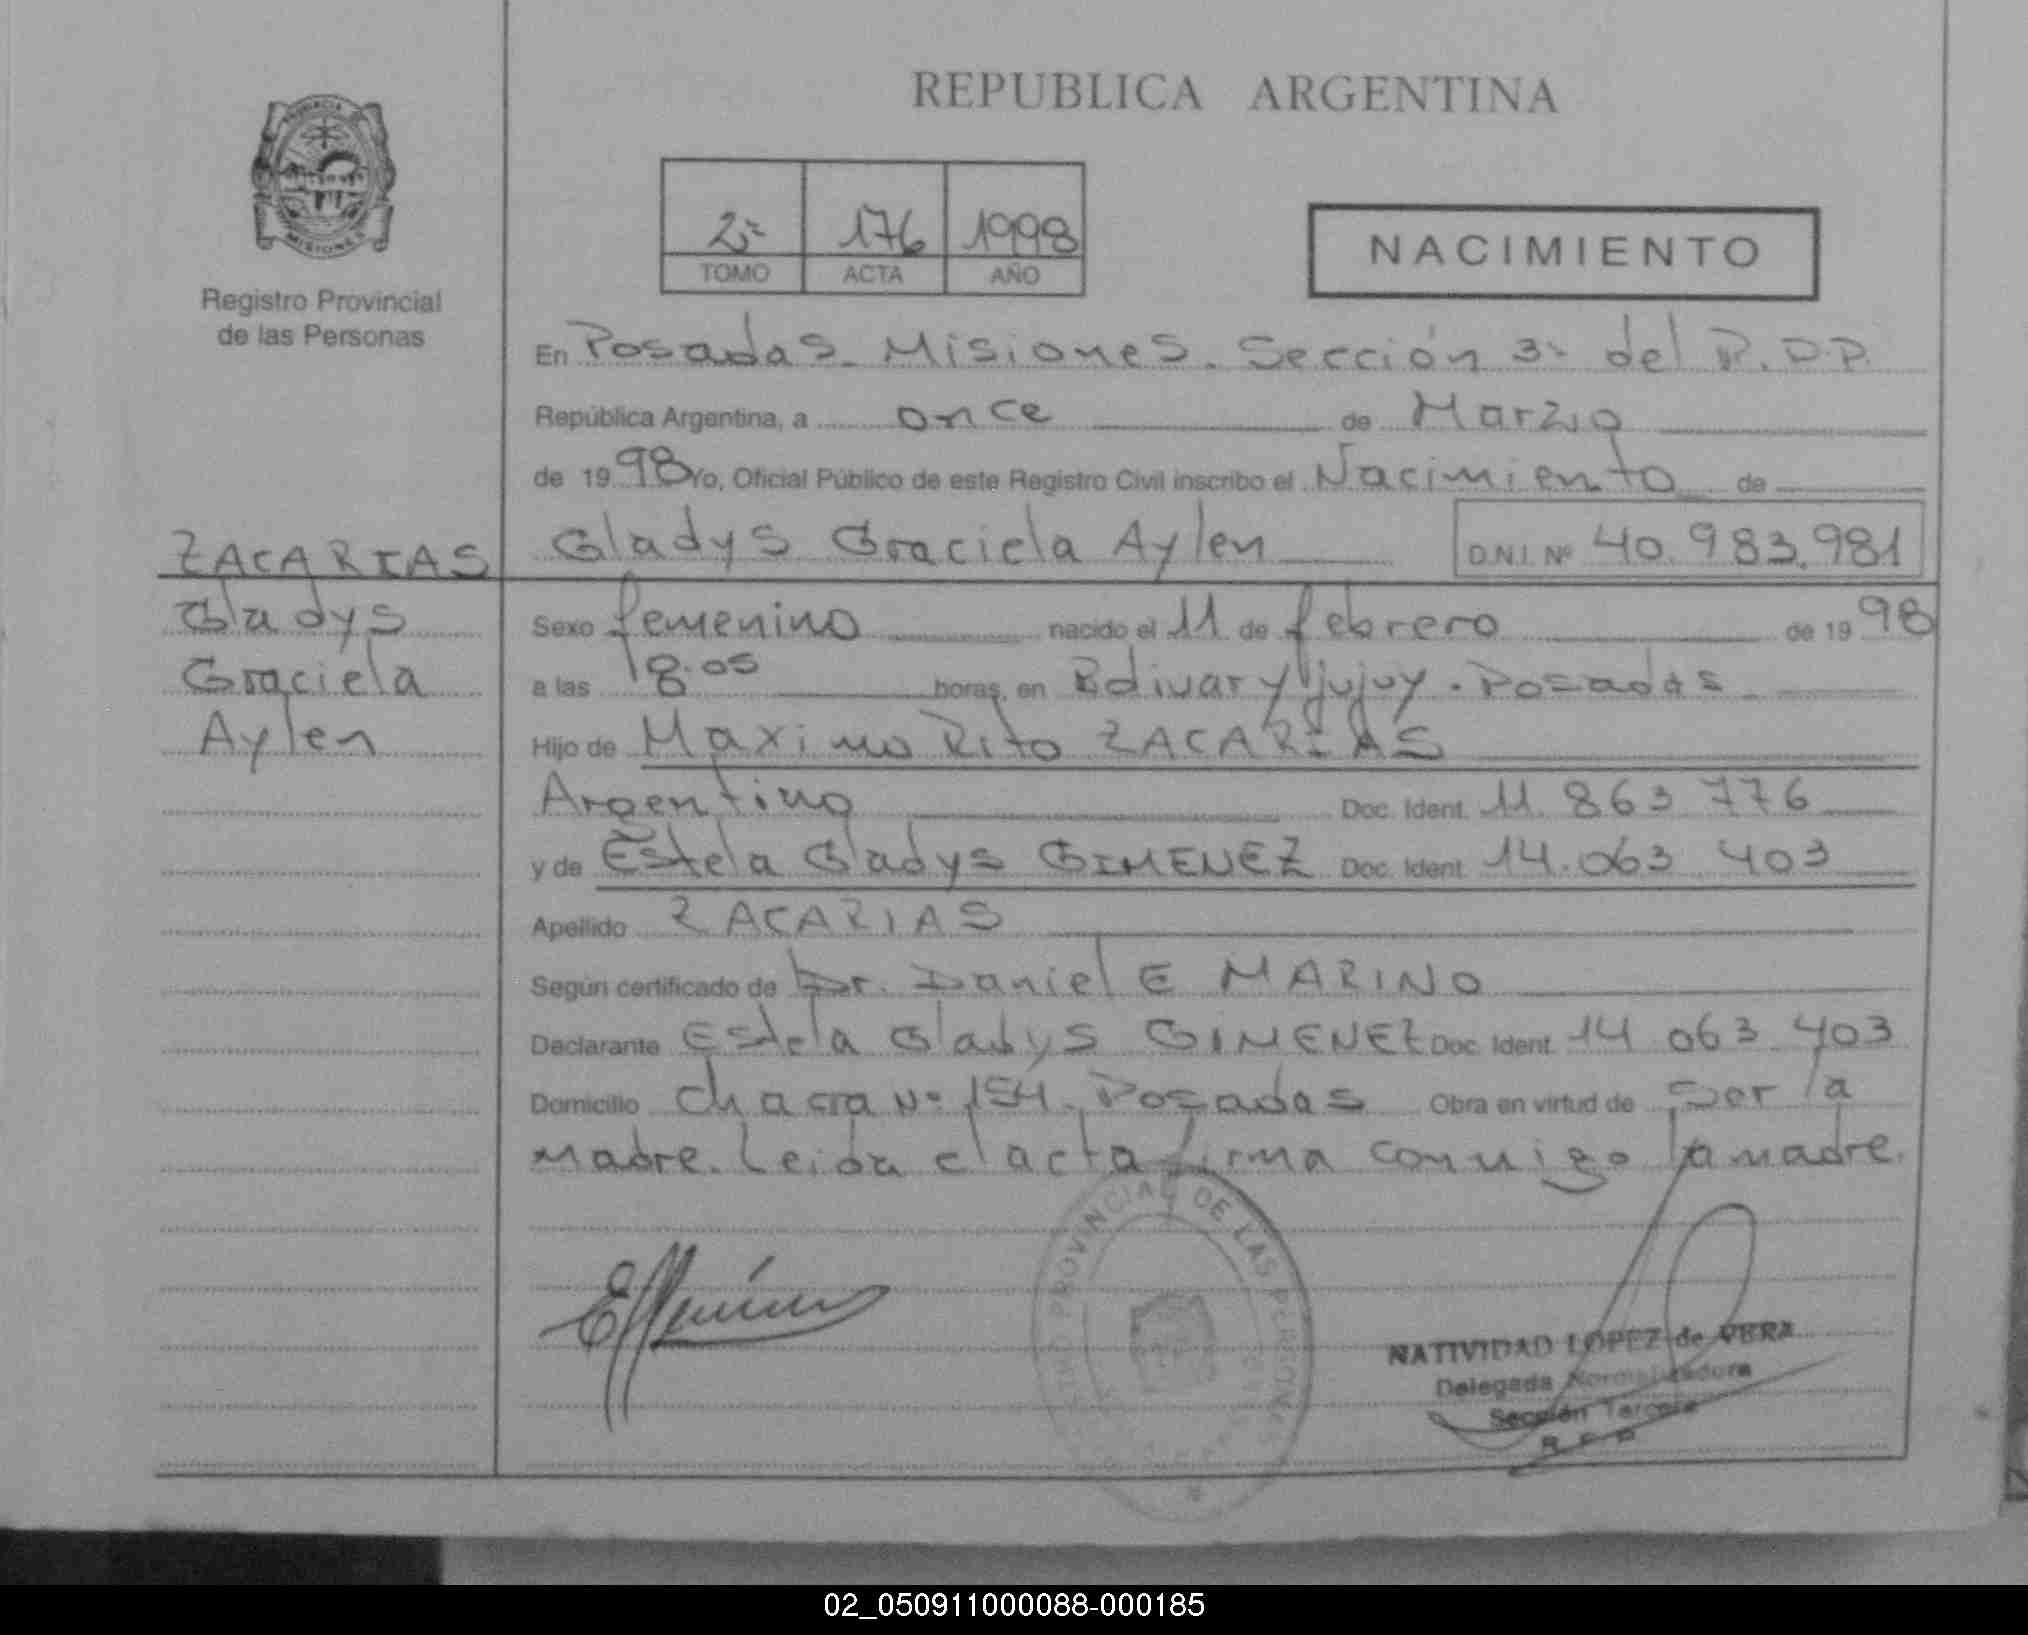 REPUBLICA ARGENTINA
PROVINCIA
MISIONES
Registro Provincial
de las Personas
2º 176 1998
TOMO ACTA AÑO
NACIMIENTO
En Posadas - Misiones. Sección 3º del R.P.P.
República Argentina, a once de Marzo
de 1998 Yo, Oficial Público de este Registro Civil inscribo el Nacimiento de
Gladys Graciela Aylen D.N.I. Nº 40.983.981
ZACARIAS
Gladys
Graciela
Aylen
Sexo femenino nacido el 11 de febrero de 1998
a las 18.05 horas, en Bolivar y Jujuy. Posadas
Hijo de Maximo Rito ZACARIAS
Argentino Doc. Ident. 11 863 776
y de Estela Gladys GIMENEZ Doc. Ident. 14.063 403
Apellido ZACARIAS
Según certificado de Dr. Daniel E MARINO
Declarante Estela Gladys GIMENEZ Doc. Ident. 14 063 403
Domicilio Chacra Nº 154. Posadas Obra en virtud de ser la
madre. Leida el acta firma conmigo la madre.
PROVINCIAL DE LAS PERSONAS
NATIVIDAD LOPEZ de VERA
Delegada Normalizadora
Sección Tercera
R. P. P.
02_050911000088-000185